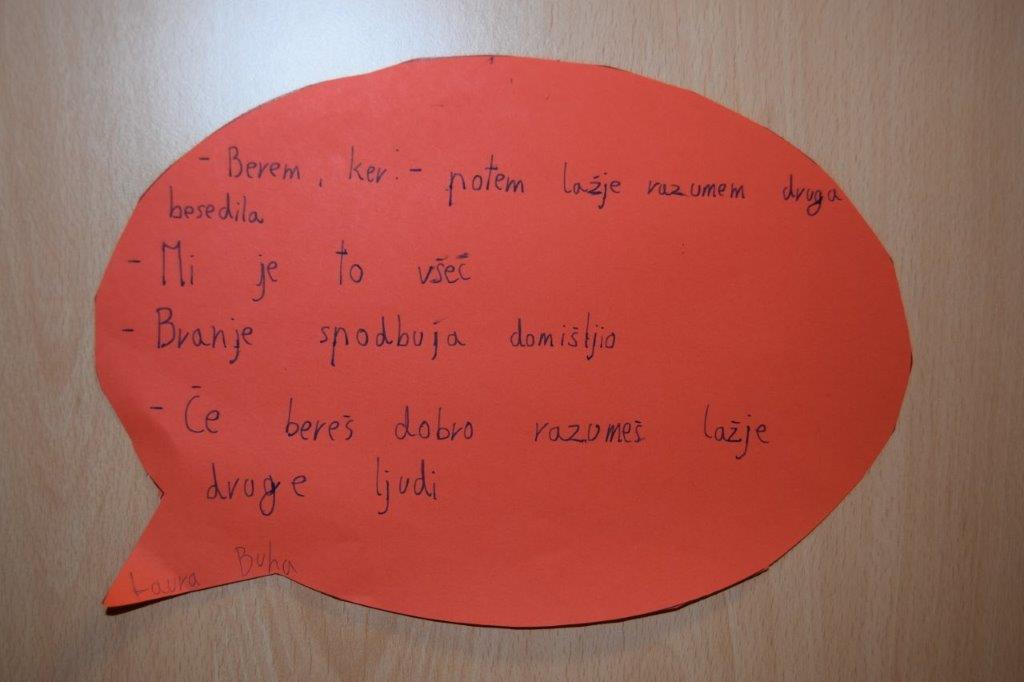 - Berem, ker: - potem lažje razumem druga
besedila
- Mi je to všeč
- Branje spodbuja domišljio
- Če bereš dobro razumeš lažje
druge ljudi
Laura Buha